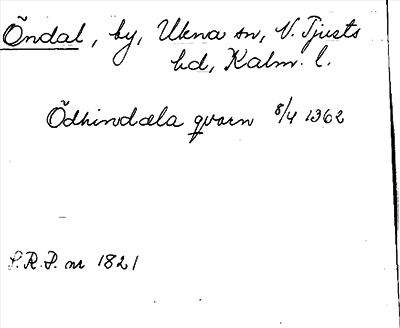 Õndal, by, Ukna sn, N. Tjusts
hd, Kalm. l.
Õdhindæla qvarn 8/4 1362
S.R.P. nr 1821